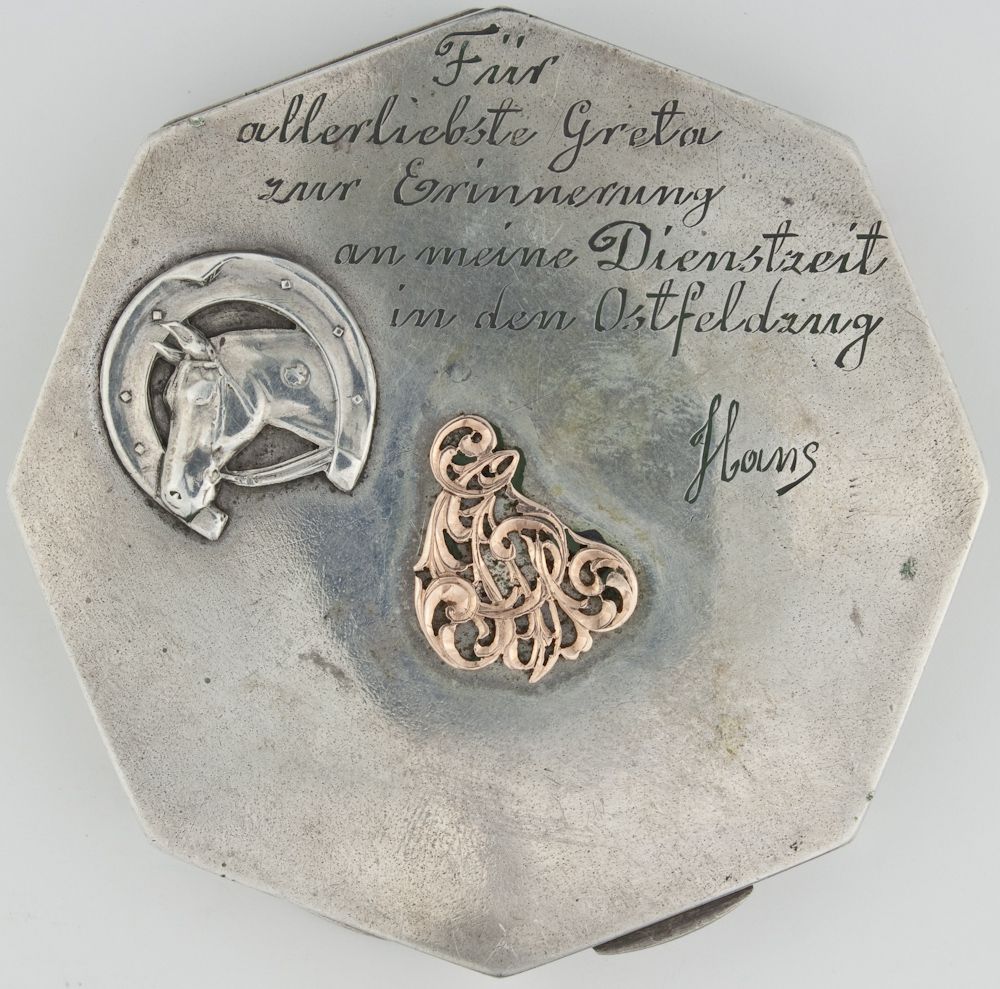 Für
allerliebste Greta
zur Erinnerung
an meine Dienstzeit
in den Ostfeldzug
Hans